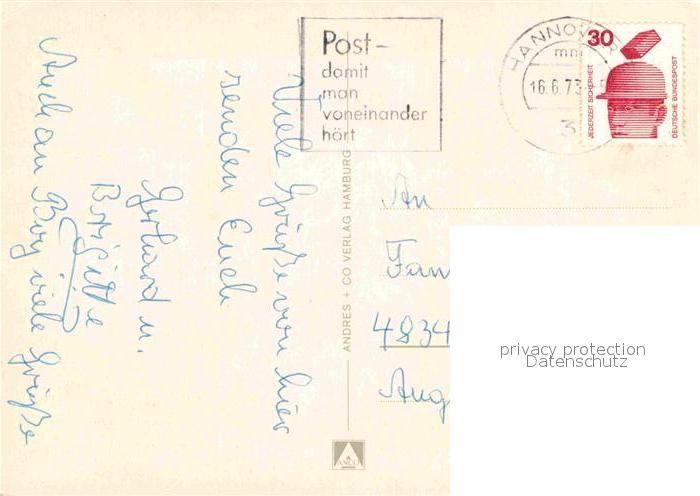 Post –
damit
man
voneinander
hört
HANNOVER
mn
16.6.73
3
30
JEDERZEIT SICHERHEIT
DEUTSCHE BUNDESPOST
Viele Grüße von hier
senden Euch
Gerhard u.
Brigitte
Auch an Borg viele Grüße
ANDRES + CO VERLAG HAMBURG
ANCO
An
Fam
4834
Aug
privacy protection
Datenschutz